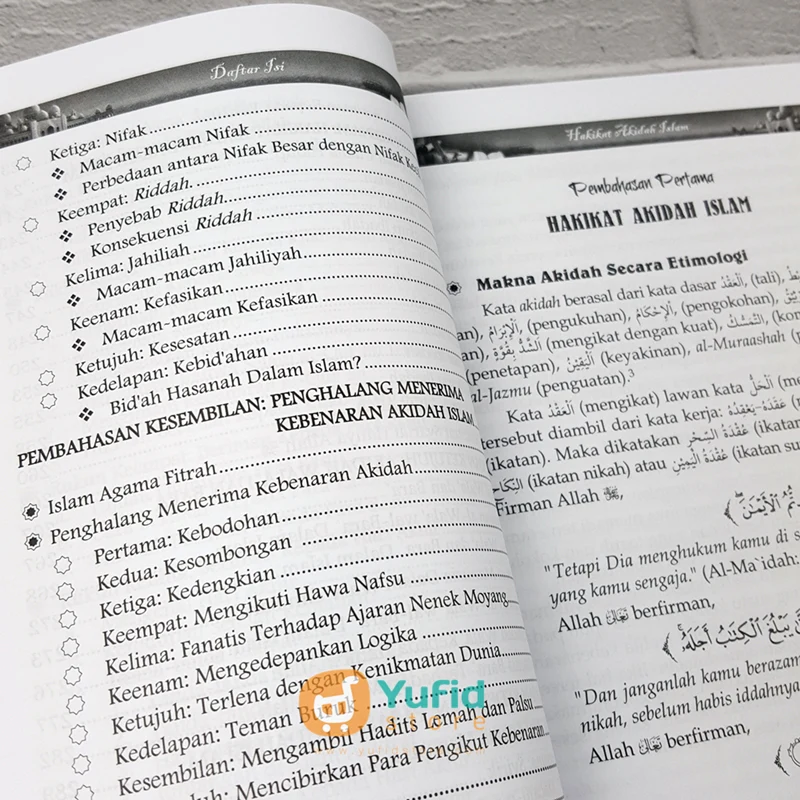 Daftar Isi
Ketiga: Nifak
Macam-macam Nifak
Perbedaan antara Nifak Besar dengan Nifak
Keempat: Riddah.
Penyebab Riddah
Konsekuensi Riddah
Kelima: Jahiliah
Macam-macam Jahiliyah
Keenam: Kefasikan
Macam-macam Kefasikan
Ketujuh: Kesesatan
Kedelapan: Kebid'ahan
Bid'ah Hasanah Dalam Islam?
PEMBAHASAN KESEMBILAN: PENGHALANG MENERIMA
KEBENARAN AKIDAH ISLAM
Islam Agama Fitrah
Penghalang Menerima Kebenaran Akidah
Pertama: Kebodohan
Kedua: Kesombongan
Ketiga: Kedengkian
Keempat: Mengikuti Hawa Nafsu
Kelima: Fanatis Terhadap Ajaran Nenek Moyang
Keenam: Mengedepankan Logika
Ketujuh: Terlena dengan Kenikmatan Dunia
Kedelapan: Teman Buruk
Kesembilan: Mengambil Hadits Lemah dan Palsu
Mencibirkan Para Pengikut Kebenaran
Hakikat Akidah Islam
Pembahasan Pertama
HAKIKAT AKIDAH ISLAM
Makna Akidah Secara Etimologi
Kata akidah berasal dari kata dasar الْعَقْدُ, (tali),
الْإِبْرَامُ, (pengukuhan), الْإِحْكَامُ, (pengokohan),
الشَّدُّ بِقُوَّةٍ (mengikat dengan kuat), التَّمَسُّكُ,
(penetapan), الْيَقِيْنُ (keyakinan), al-Muraashah
al-Jazmu (penguatan).3
Kata الْعَقْدُ (mengikat) lawan kata الْحَلُّ
tersebut diambil dari kata kerja: عَقَدَ-يَعْقِدُهُ
(ikatan). Maka dikatakan عُقْدَةُ السِّحْرِ (ikatan
(ikatan nikah) atau عُقْدَةُ الْيَمِيْنِ (ikatan
Firman Allah ﷻ,
الْأَيْمَٰنَ ۖ ﴾
"Tetapi Dia menghukum kamu di
yang kamu sengaja." (Al-Ma`idah:
Allah تَعَالَى berfirman,
يَبْلُغَ الْكِتَٰبُ أَجَلَهُۥ ﴾
"Dan janganlah kamu
nikah, sebelum habis iddahnya
Allah تَعَالَى berfirman,
Yufid
store